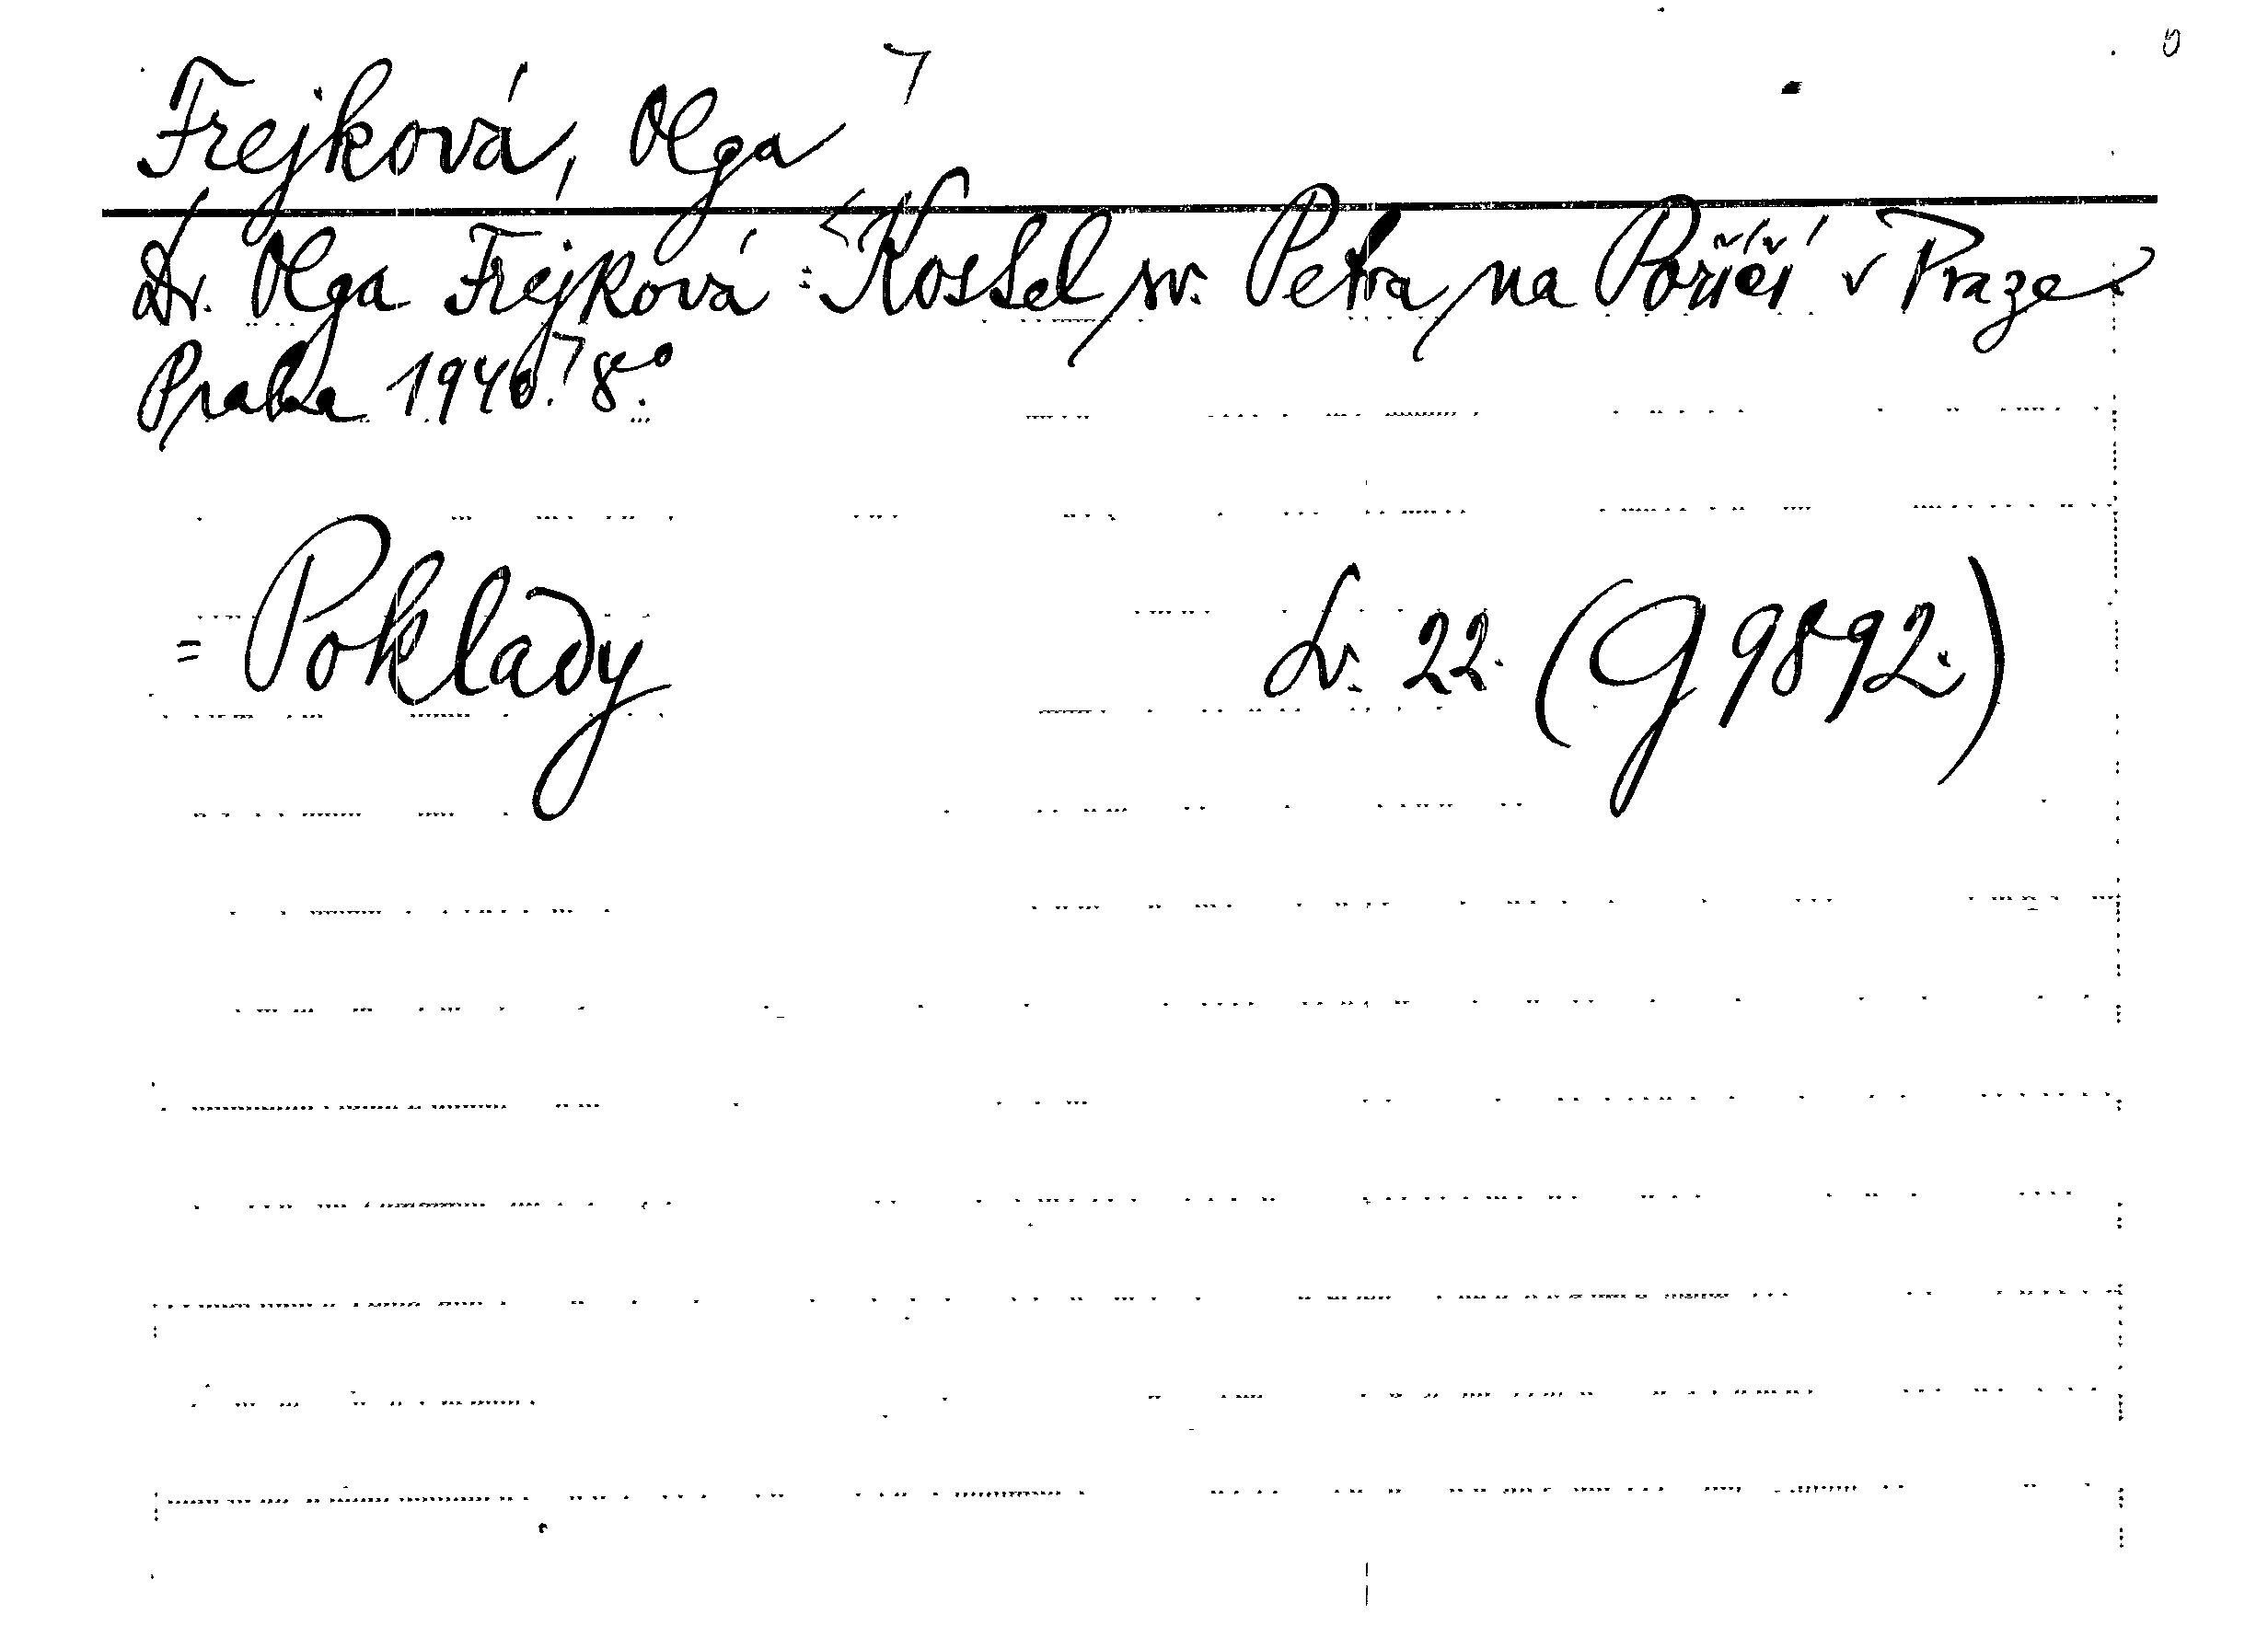 Frejková, Olga
Dr. Olga Frejková: Kostel sv. Petra na Poříčí v Praze
Praha 1940. 8°.
= Poklady Sv. 22. (G 9892.)